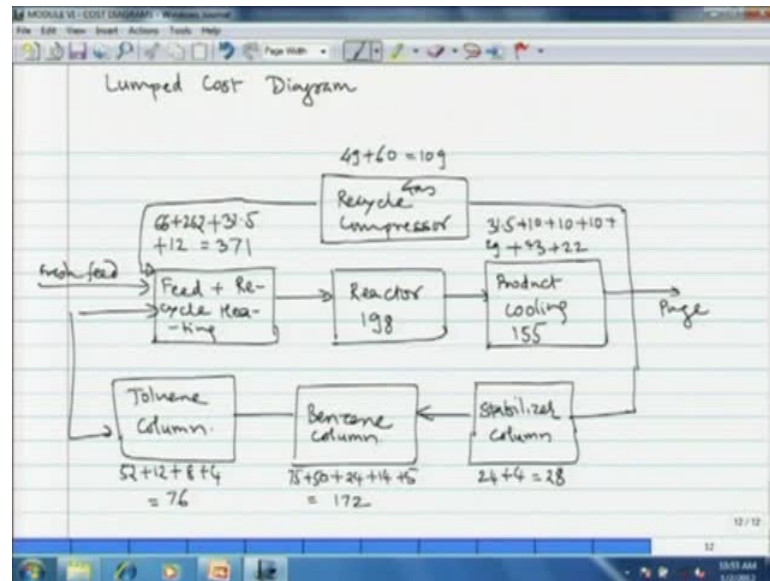 MODULE VI - COST DIAGRAMS - Windows Journal
File Edit View Insert Actions Tools Help
Page Width
Lumped Cost Diagram
49+60 = 109
Recycle Gas
Compressor
66+262+31.5
+12 = 371
31.5+10+10+10+
29+43+22
Fresh feed
Feed + Re-
cycle Hea-
-ting
Reactor
198
Product
cooling
155
Purge
Toluene
Column.
Benzene
column.
Stabilizer
column
52+12+8+4
= 76
75+50+24+14+5
= 172
24+4 = 28
12 / 12
12
10:53 AM
1/2/2012